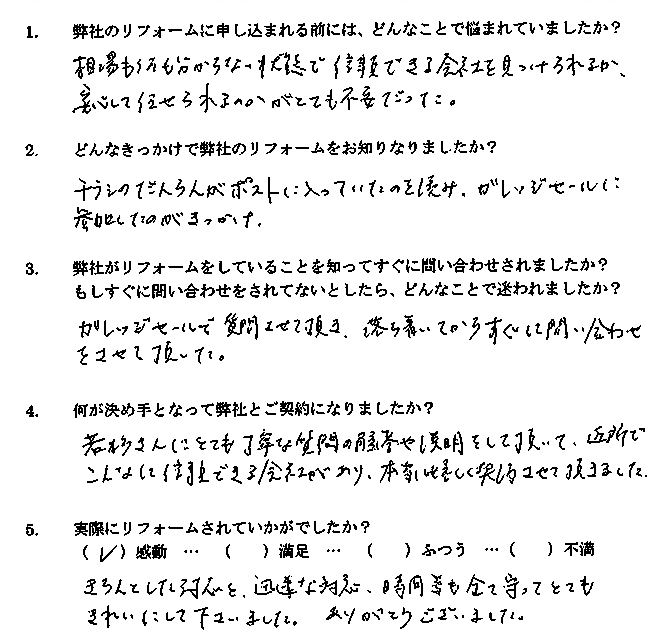 1. 弊社のリフォームに申し込まれる前には、どんなことで悩まれていましたか？
相場も何も分からない状態で信頼できる会社を見つけられるか、
安心して任せられるのかがとても不安だった。
2. どんなきっかけで弊社のリフォームをお知りなりましたか？
チラシのだんらんがポストに入っていたのを読み、ガレッジセールに
参加したのがきっかけ。
3. 弊社がリフォームをしていることを知ってすぐに問い合わせされましたか？
もしすぐに問い合わせをされてないとしたら、どんなことで迷われましたか？
ガレッジセールで質問させて頂き、落ち着いてからすぐに問い合わせ
をさせて頂いた。
4. 何が決め手となって弊社とご契約になりましたか？
若杉さんにとても丁寧な質問の回答や説明をして頂いて、近所で
こんなに信頼できる会社があり、本当に嬉しく契約させて頂きました。
5. 実際にリフォームされていかがでしたか？
(✓) 感動 … ( ) 満足 … ( ) ふつう … ( ) 不満
きちんとした対応と、迅速な対応、時間等も全て守ってとても
きれいにして下さいました。ありがとうございました。